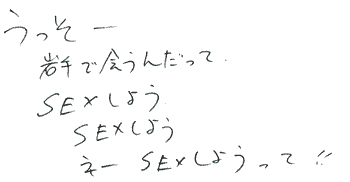 うっそー
岩手で会うんだって.
SEXしよう
SEXしよう
えー SEXしようって!!